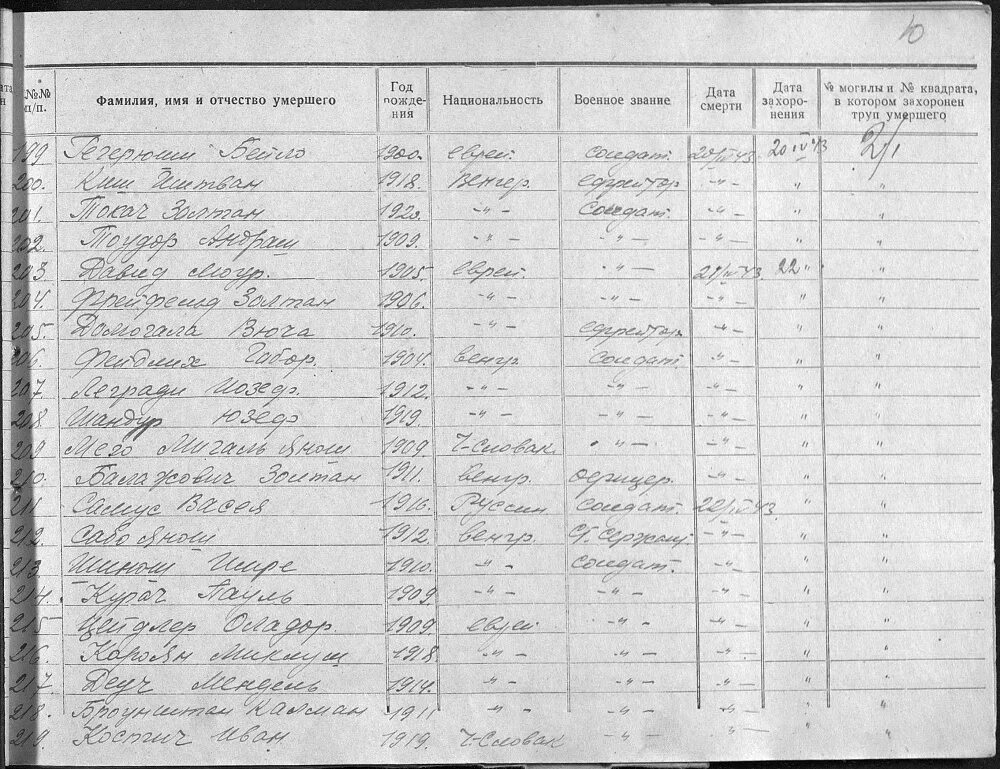 10
№№ п/п. Фамилия, имя и отчество умершего Год рождения Национальность Военное звание Дата смерти Дата захоронения № могилы и № квадрата, в котором захоронен труп умершего
199 Гегерюши Бейло 1900. еврей солдат. 20/IV 43. 20 IV 43 2/1
200. Киш Иштван 1918. Венгер. ефрейтор -„- „ „
201. Токач Золтан 1920. -„- солдат. -„- „ „
202. Тоудор Андраш 1909. -„- -„- -„- „ „
203. Давид Могур. 1905. еврей -„- 21/IV 43 22 „ „
204. Фрейфельд Золтан 1906. -„- -„- -„- „ „
205. Домогала Вюча 1910. -„- ефрейтор. -„- „ „
206. Фейдлих Габор. 1904. венгр. солдат. -„- „ „
207. Легради Иозеф. 1912. -„- -„- -„- „ „
208. Шандур Юзеф 1919. -„- -„- -„- „ „
209. Мезо Мигаль Янош 1909. Ч-Словак. -„- -„- „ „
210. Балажович Золтан 1911. венгр. офицер. -„- „ „
211 Самус Васея 1916. Руссин солдат. 22/IV 43. „ „
212. Сабо Янош 1912. венгр. Ст. Сержант. -„- „ „
213. Шинош Шире 1910. -„- солдат. -„- „ „
214. Курач Пауль 1909. -„- -„- -„- „ „
215. Цейдлер Оладор. 1909. еврей -„- -„- „ „
216. Кароян Миклуш 1918. -„- -„- -„- „ „
217. Деуч Мендель 1914. -„- -„- -„- „ „
218. Броунштан Калман 1911 -„- -„- -„- „ „
219. Костич Иван 1919. Ч-Словак -„- -„- „ „